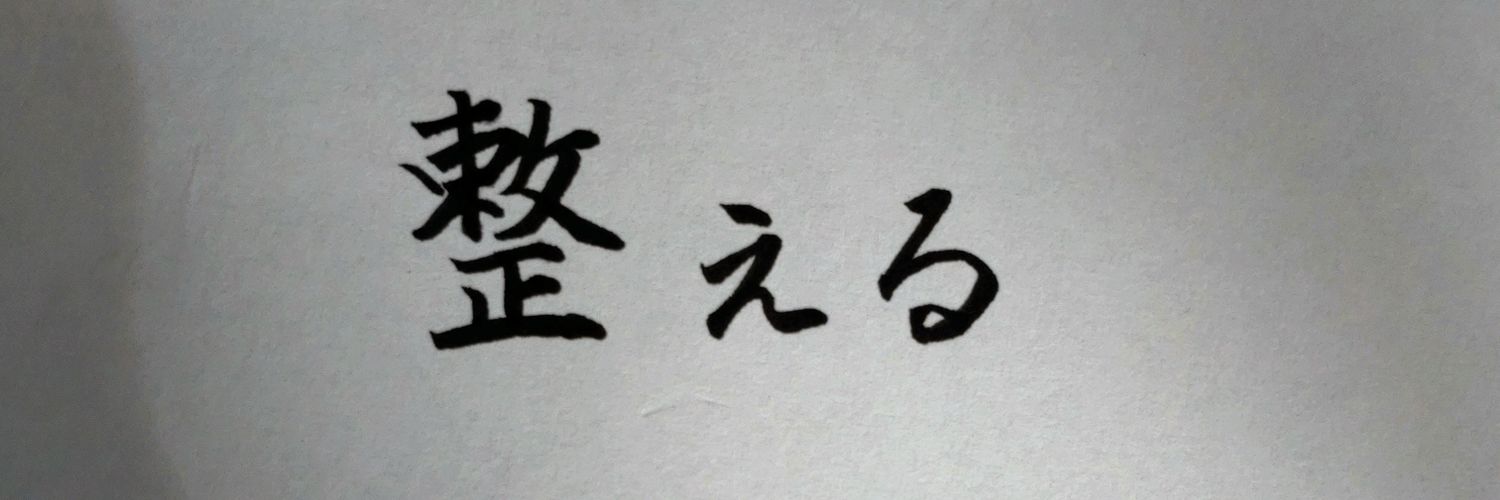 整える